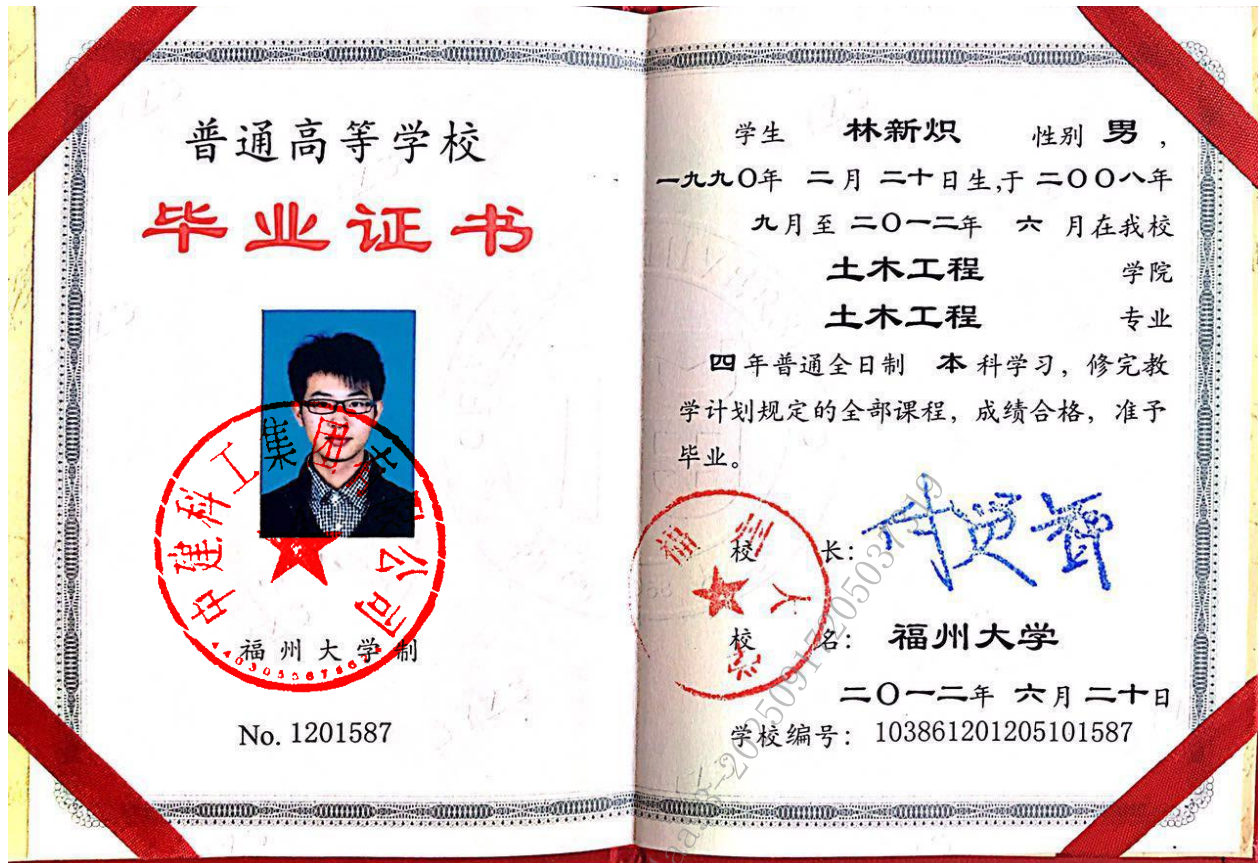 普通高等学校
毕业证书
中建科工集团有限公司
福州大学制
No. 1201587
学生 林新炽 性别 男，
一九九〇年 二月 二十日生,于 二〇〇八年
九月至 二〇一二年 六 月在我校
土木工程 学院
土木工程 专业
四年普通全日制 本科学习，修完教
学计划规定的全部课程，成绩合格，准予
毕业。
校 长：
福州大
校 名： 福州大学
二〇一二年 六月 二十日
学校编号： 103861201205101587